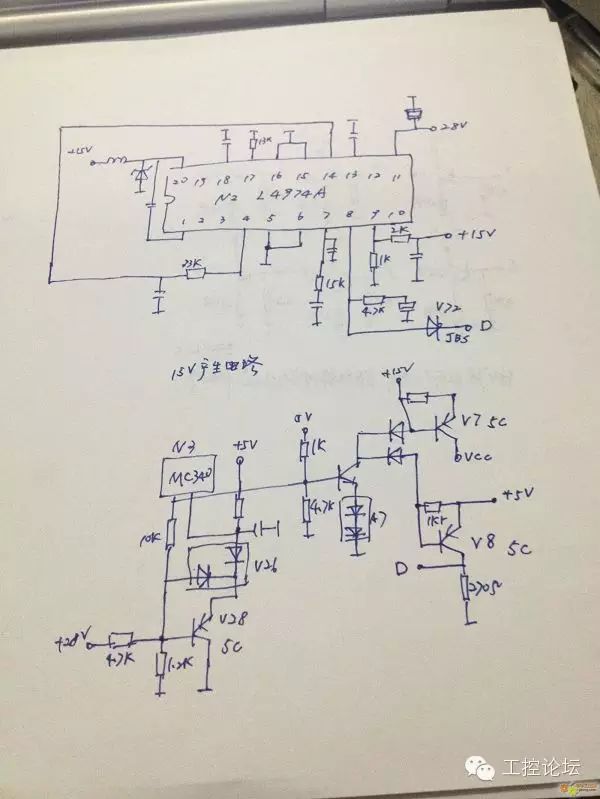 28V
+15V
13K
20 19 18 17 16 15 14 13 12 11
N2 L4974A
1 2 3 4 5 6 7 8 9 10
2K
+15V
23K
1K
15K
4.7K
V22
D
JB5
15V产生电路
+15V
V7 5C
VCC
N3
MC340
+5V
1K
4.7K
A7
+5V
1K5
10K
V26
V8
5C
D
270Ω
+28V
4.7K
1.2K
V28
5C
工控论坛